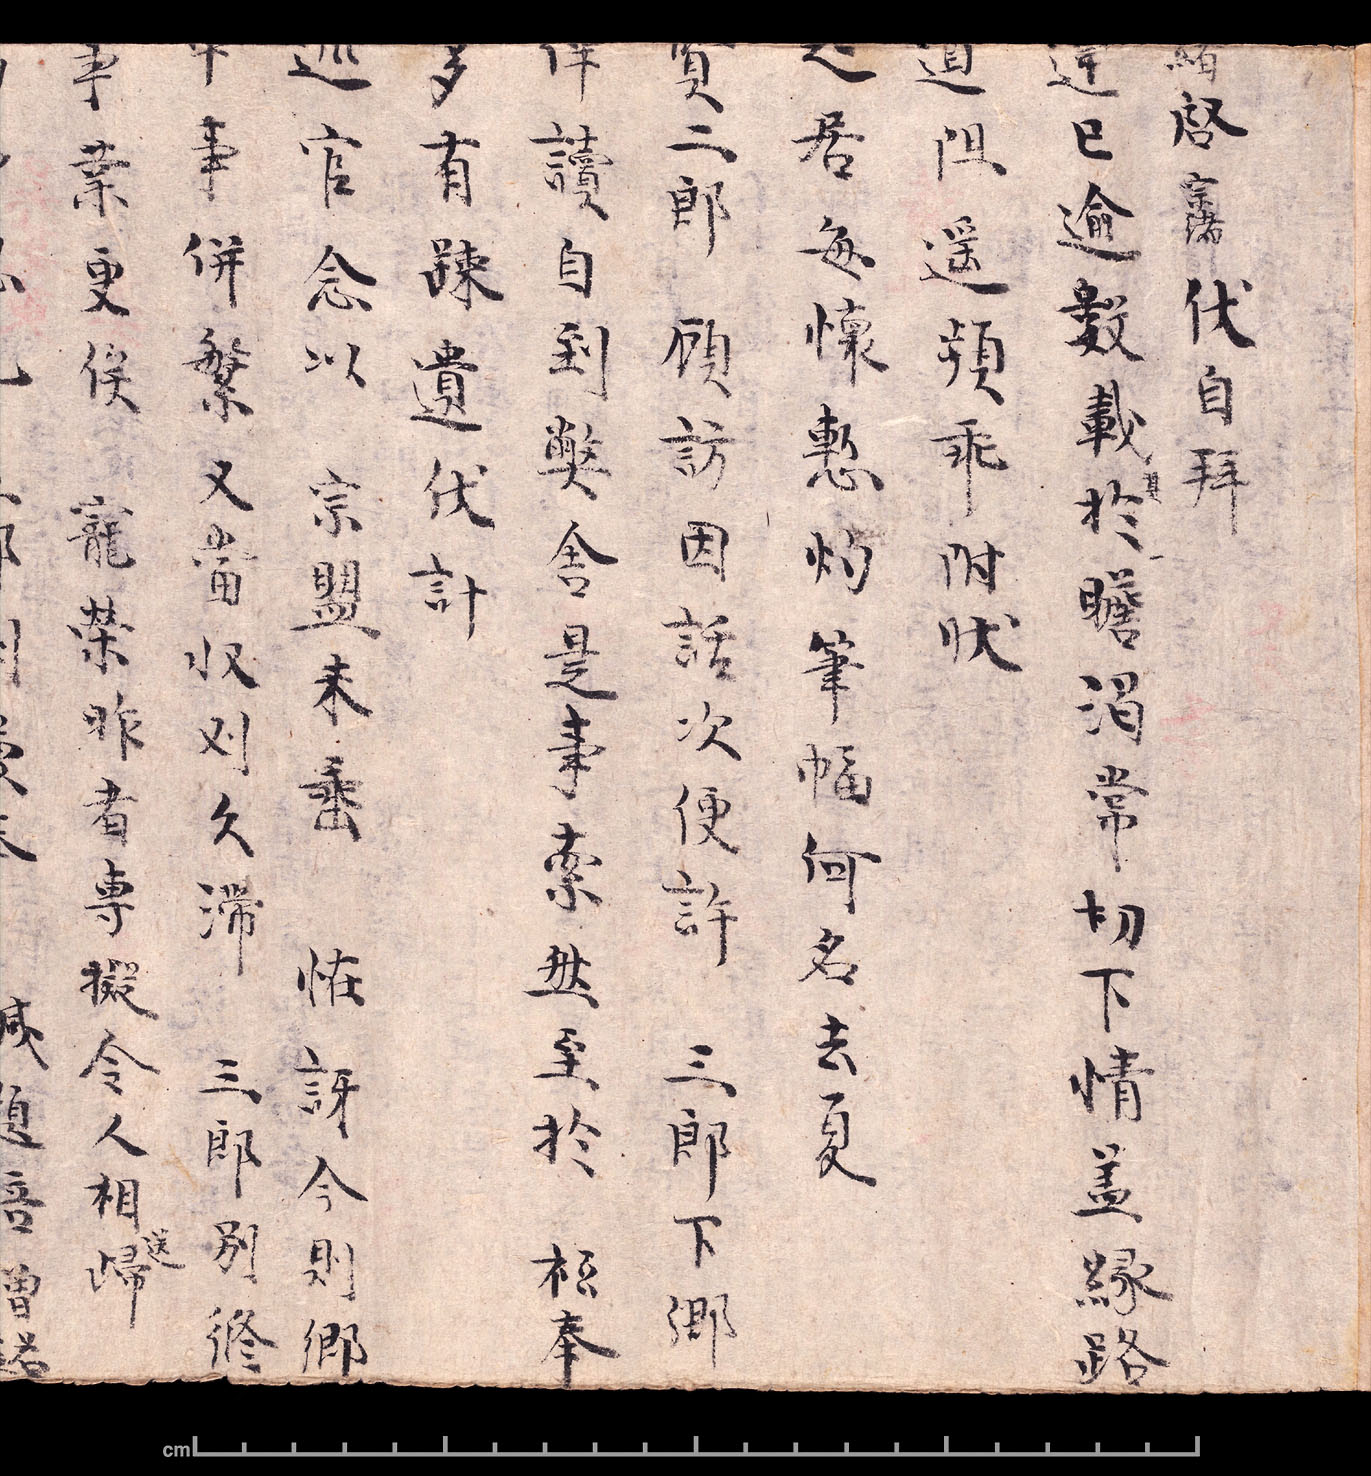 緒啓 伏自拜
違已逾數載於瞻渴常切下情盖緣路
道阻遥頻乖附狀
起居每懷慙灼筆幅何名去夏
賢二郎 顧訪因話次便許 三郎下鄉
伴讀自到弊舍是事索然至於 祗奉
多有踈遺伏計
巡官念以 宗盟未垂 恠訝今則鄉
中事併繁又當收刈久滯 三郎別修
事業更俟 寵榮昨者專擬令人相歸
送
cm